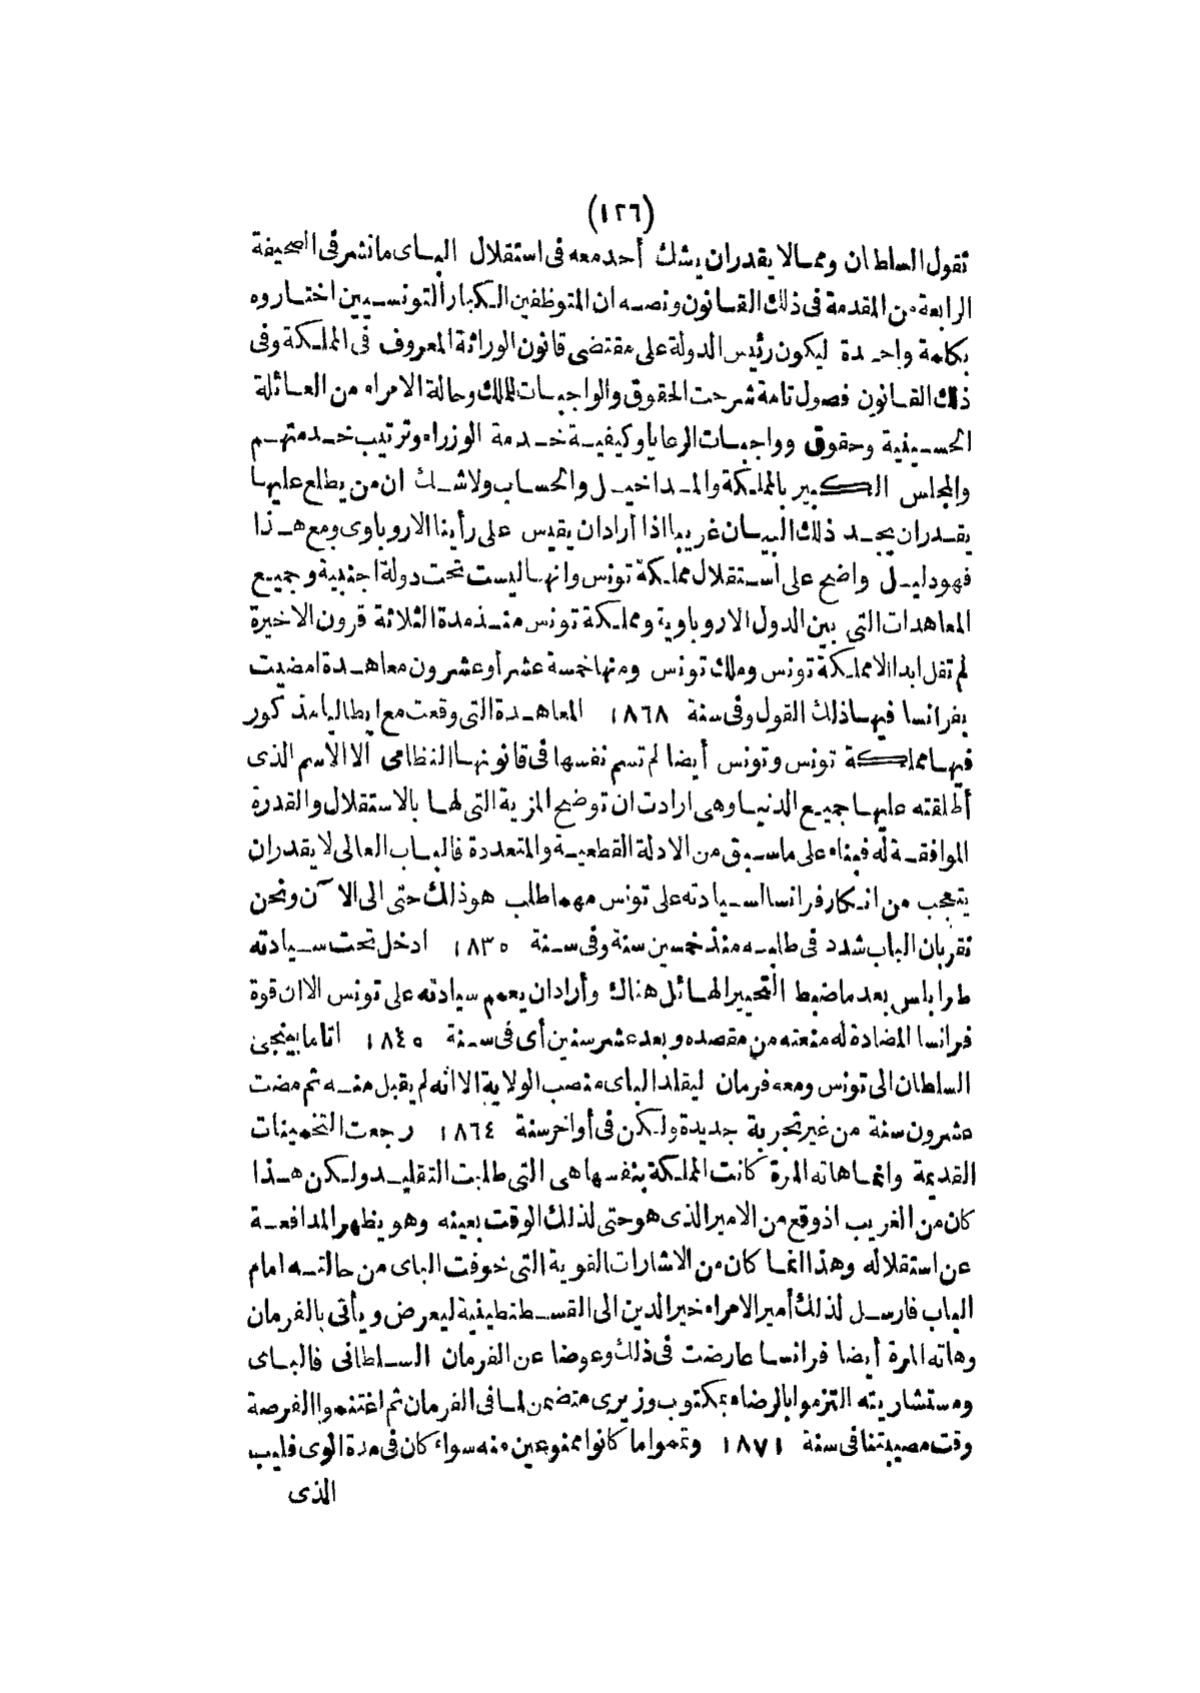 (١٢٦)
تقول السلطان ومما لا يقدر ان يشك أحد معه فى استقلال الباى ما نشر فى الصحيفة
الرابعة من المقدمة فى ذلك القانون ونصه ان المتوظفين الكبار التونسيين اختاروه
بكامة واحدة ليكون رئيس الدولة على مقتضى قانون الوراثة المعروف فى المملكة وفى
ذلك القانون فصول تامة شرحت الحقوق والواجبات للملك وحالة الامراء من العائلة
الحسينية وحقوق وواجبات الرعايا وكيفية خدمة الوزراء وترتيب خدمتهم
والمجلس الكبير بالمملكة والمداخيل والحساب ولا شك ان من يطلع عليها
يقدر ان يجد ذلك البيان غريبا اذا أراد ان يقيس على رأينا الاروباوى ومع هذا
فهو دليل واضح على استقلال مملكة تونس وانها ليست تحت دولة اجنبية وجميع
المعاهدات التى بين الدول الاروباوية ومملكة تونس منذ مدة الثلاثة قرون الاخيرة
لم تقل ابدا الا مملكة تونس وملك تونس ومنها خمسة عشر أو عشرون معاهدة امضيت
بفرانسا فيها ذلك القول وفى سنة ١٨٦٨ المعاهدة التى وقعت مع ايطاليا مذكور
فيها مملكة تونس وتونس أيضا لم تسم نفسها فى قانونها النظامى الا الاسم الذى
أطلقته عليها جميع الدنيا وهى ارادت ان توضح المزية التى لها بالاستقلال والقدرة
الموافقة له فبناء على ما سبق من الادلة القطعية والمتعددة فالباب العالى لا يقدر ان
يتعجب من انكار فرانسا لسيادته على تونس مهما طلب هو ذلك حتى الى الآن ونحن
نقر بان الباب شدد فى طلبه منذ خمسين سنة وفى سنة ١٨٣٥ ادخل تحت سيادته
طرابلس بعد ما ضبط التحيير الهائل هناك وأراد ان يعمم سيادته على تونس الا ان قوة
فرانسا المضادة له منعته من مقصده وبعد عشر سنين أى فى سنة ١٨٤٥ اتا مابينجى
السلطان الى تونس ومعه فرمان ليقلد الباى منصب الولاية الا انه لم يقبل منه ثم مضت
عشرون سنة من غير تجربة جديدة ولكن فى أواخر سنة ١٨٦٤ رجعت التخمينات
القديمة وانما هاته المرة كانت المملكة بنفسها هى التى طلبت التقليد ولكن هذا
كان من الغريب اذ وقع من الامير الذى هو حتى لذلك الوقت بعينه وهو يظهر المدافعة
عن استقلاله وهذا انما كان من الاشارات القوية التى خوفت الباى من حالته امام
الباب فارسل لذلك أمير الامراء خير الدين الى القسطنطينية ليعرض ويأتى بالفرمان
وهاته المرة أيضا فرانسا عارضت فى ذلك وعوضا عن الفرمان السلطانى فالباى
ومستشاريته التزموا بالرضاء بمكتوب وزيرى متضمن لما فى الفرمان ثم اغتنموا الفرصة
وقت مصيبتنا فى سنة ١٨٧١ وتمموا ما كانوا ممنوعين منه سواء كان فى مدة الوى فليب
الذى